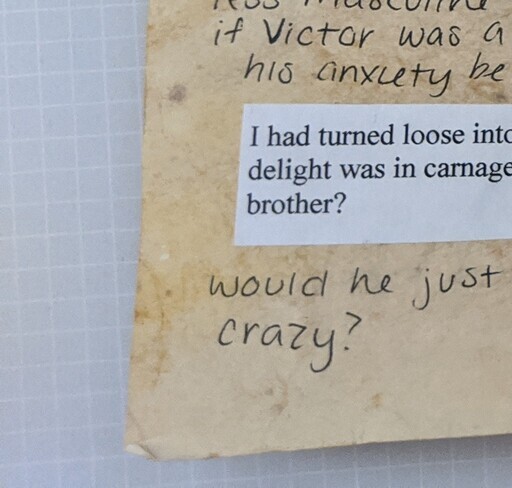 if Victor was a
his anxiety be
I had turned loose into
delight was in carnage
brother?
would he just
crazy?